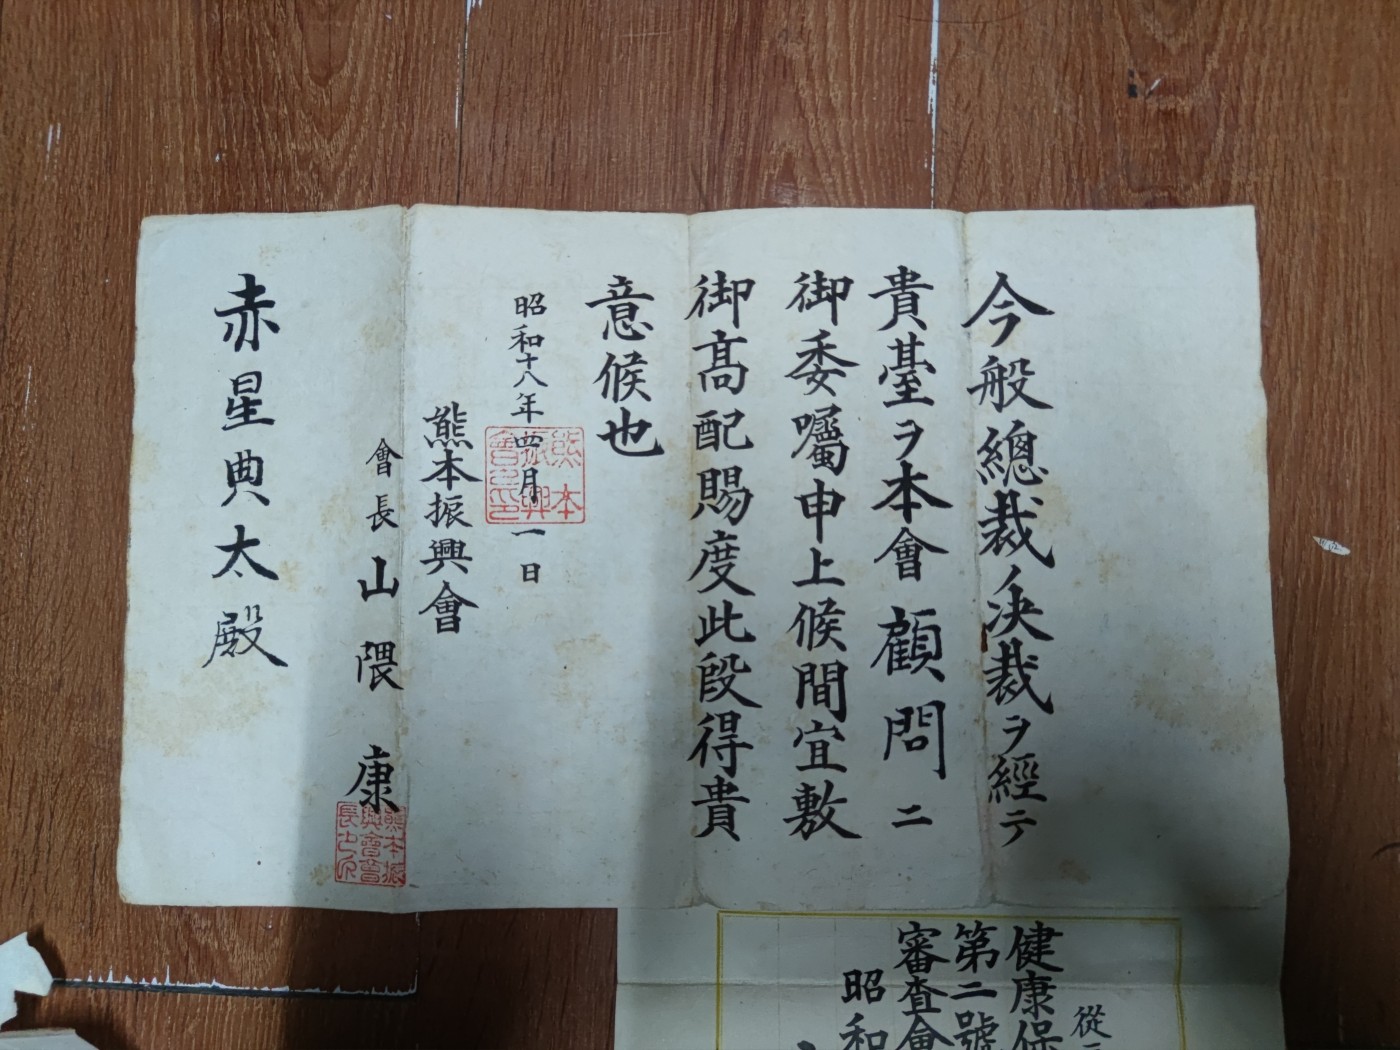 今般總裁ノ決裁ヲ經テ
貴臺ヲ本會顧問ニ
御委囑申上候間宜敷
御高配賜度此段得貴
意候也
昭和十八年四月一日
熊本振興會
會長 山隈康
赤星典太殿
熊本
振興
會之印
熊本振
興會會
長之印
從
健康保
第二號
審査會
昭和